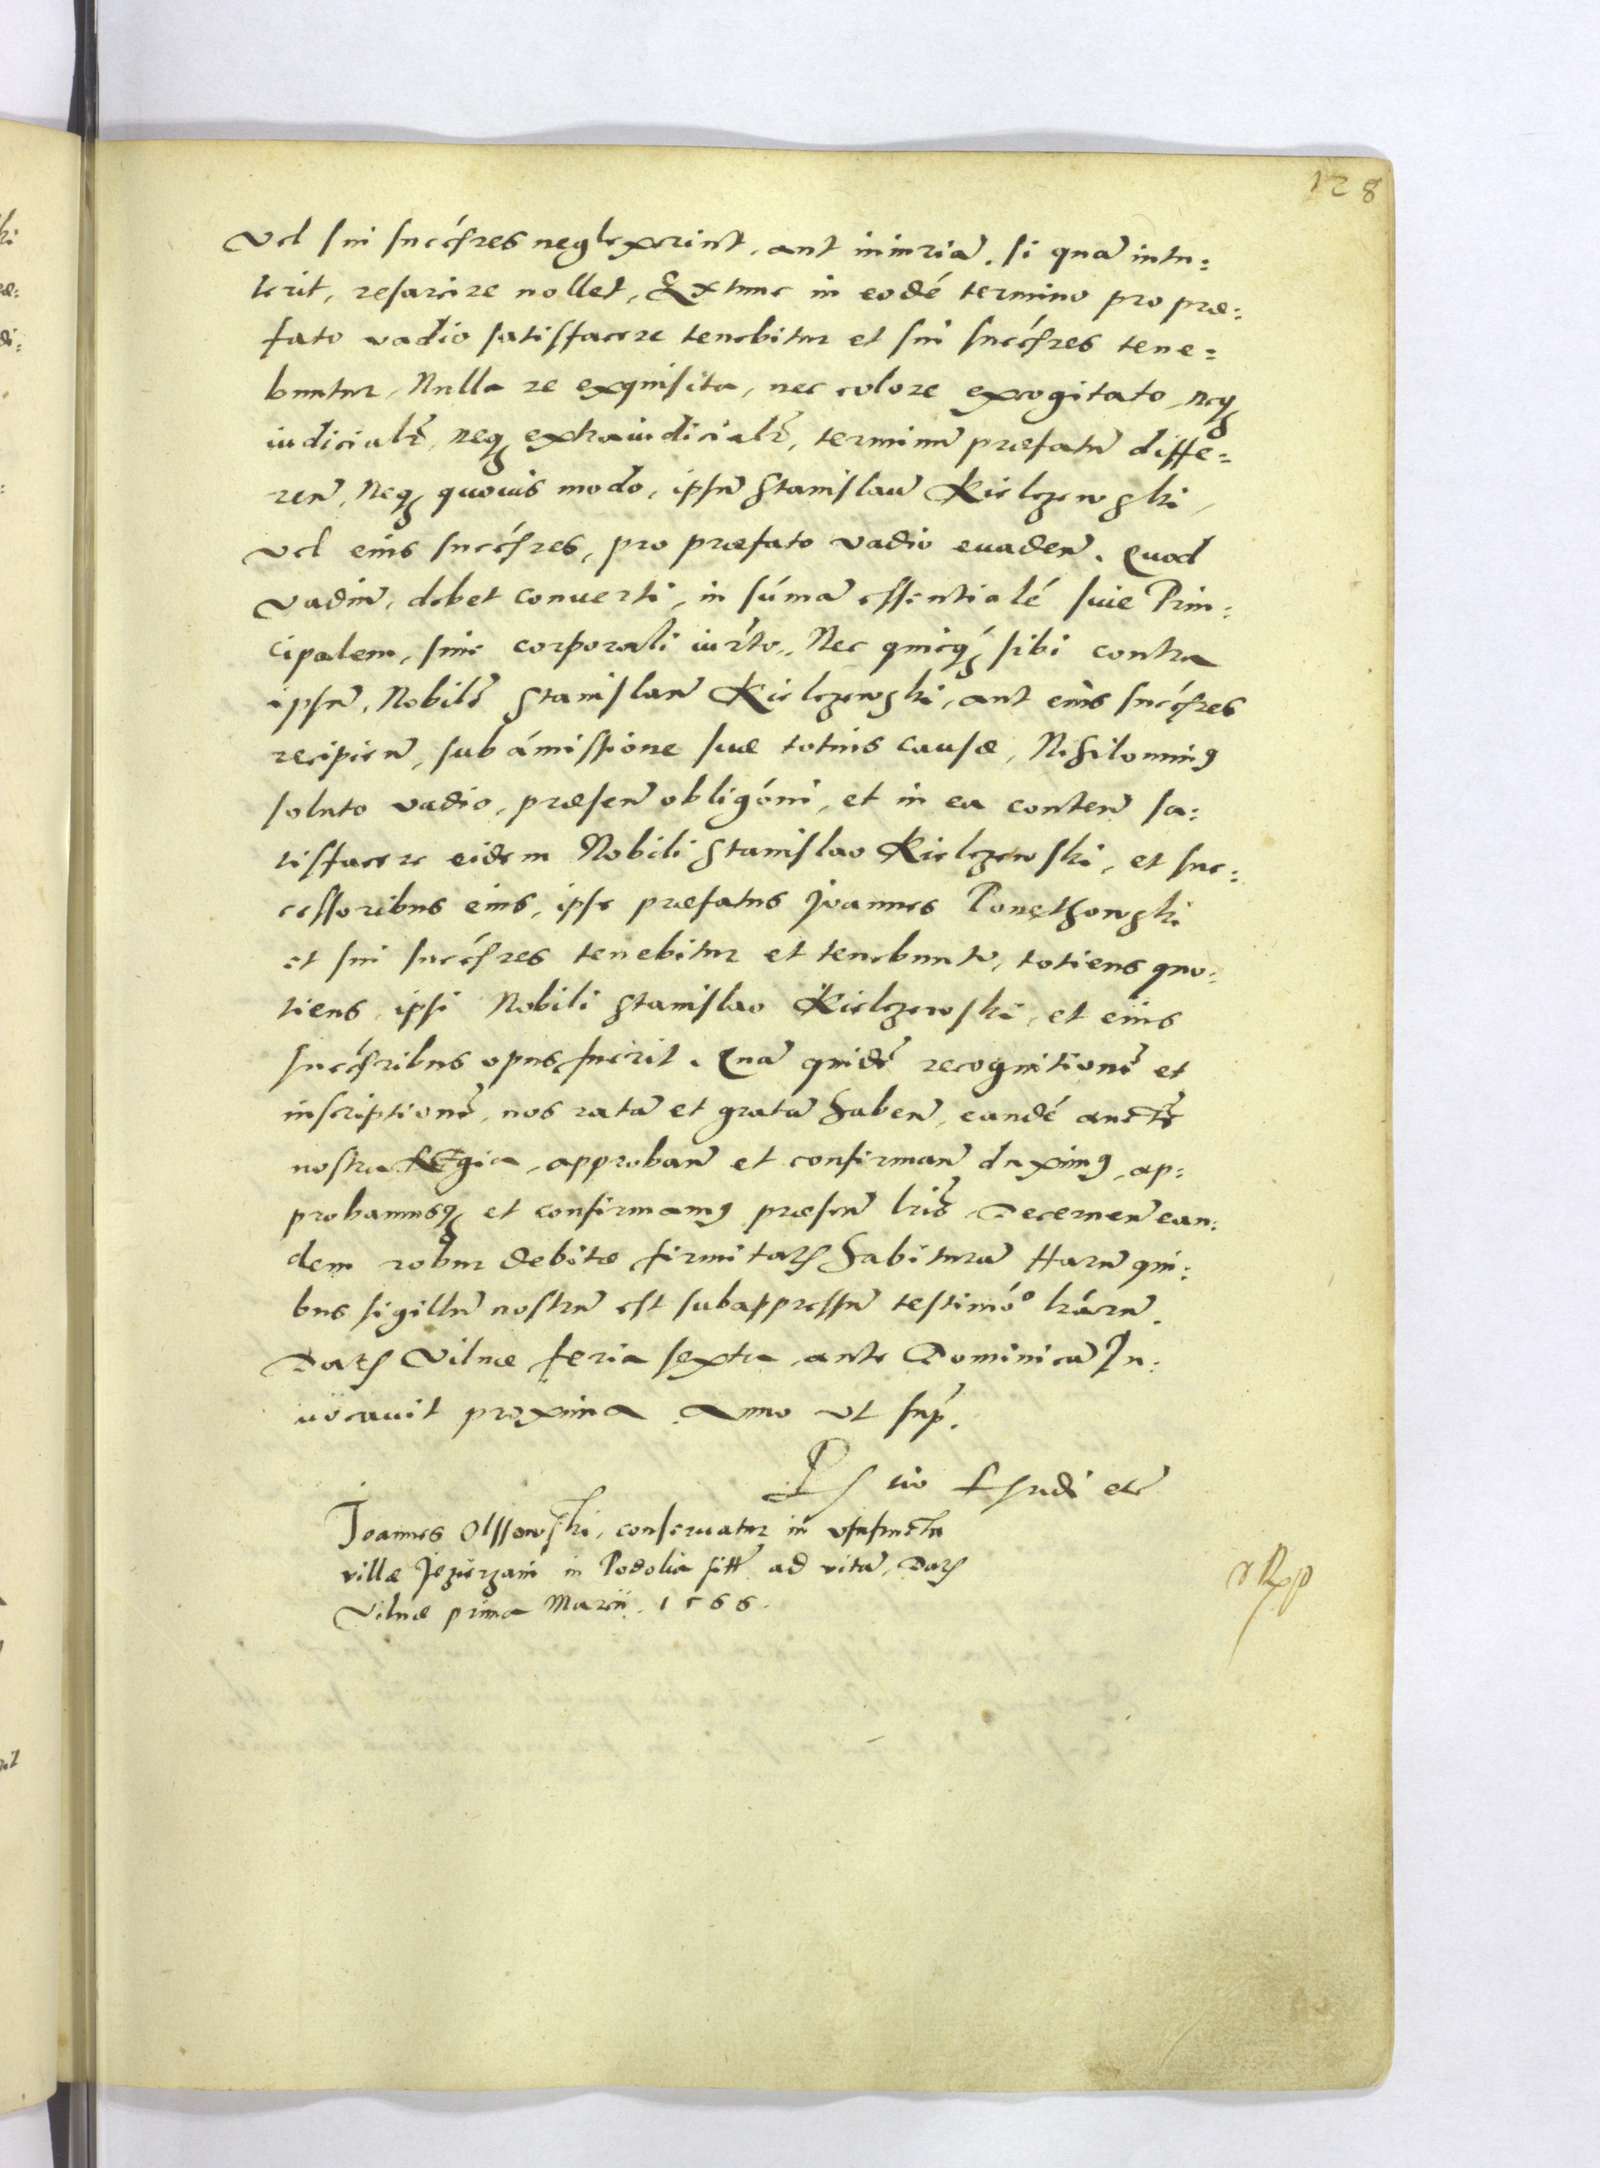 128
Vel sui succ̃sres neglexerint, aut iniuriā, si quā intu:
lerit, resarcire nollet, Extunc in eodē termino pro præ:
fato vadio satisfacere tenebitur et sui succ̃sres tene:
buntur, Nulla re exquisita, nec colore excogitato, neqꝫ
iudicialr̃, neqꝫ extraiudicialr̃, terminū præfatū diffe:
reñ, Neqꝫ quouis modo, ipsū Stanislaū Kielczewski,
vel eius succ̃sres, pro præfato vadio euadeñ. Quod
vadiū, debet conuerti, in sūmā essentialē siue Prin:
cipalem, sine corporali iur̃to, Nec quicqꝫ sibi contra
ipsū, Nobilē Stanislaū Kielczewski, aut eius succ̃sres
recipieñ, sub amissione suæ totius causæ, Nihilominꝰ
soluto vadio, præseñ obligõni, et in ea conteñ sa:
tisfacere eidem Nobili Stanislao Kielczewski, et suc:
cessoribus eius, ipse præfatus Joannes Ponęthowski
et sui succ̃sres tenebitur et tenebunt̃, totiens quo:
tiens, ipsi Nobili Stanislao Kielczewski, et eius
succ̃sribus opus fuerit. Quā quidē recognitionē et
inscriptionē, nos ratā et gratā habeñ, eandē auctte
nostra Regia, approbañ et confirmañ duximꝰ, ap:
probamusqꝫ et confirmamꝰ præseñ lrīs Decerneñ ean:
dem robur debitæ firmitatꝭ habiturā Harū qui:
bus sigillū nostrū est subappressū testimō° lrārū.
Datꝭ Vilnæ feria sexta ante Dominicā In:
uocauit proxima. Anno vt sup̃.
Joannes Olssowski, conseruatur in vsufructu
villæ Jezierzani in Podolia sitt̃ ad vitā, Datꝭ
Vilnæ prima Marcii. 1566.